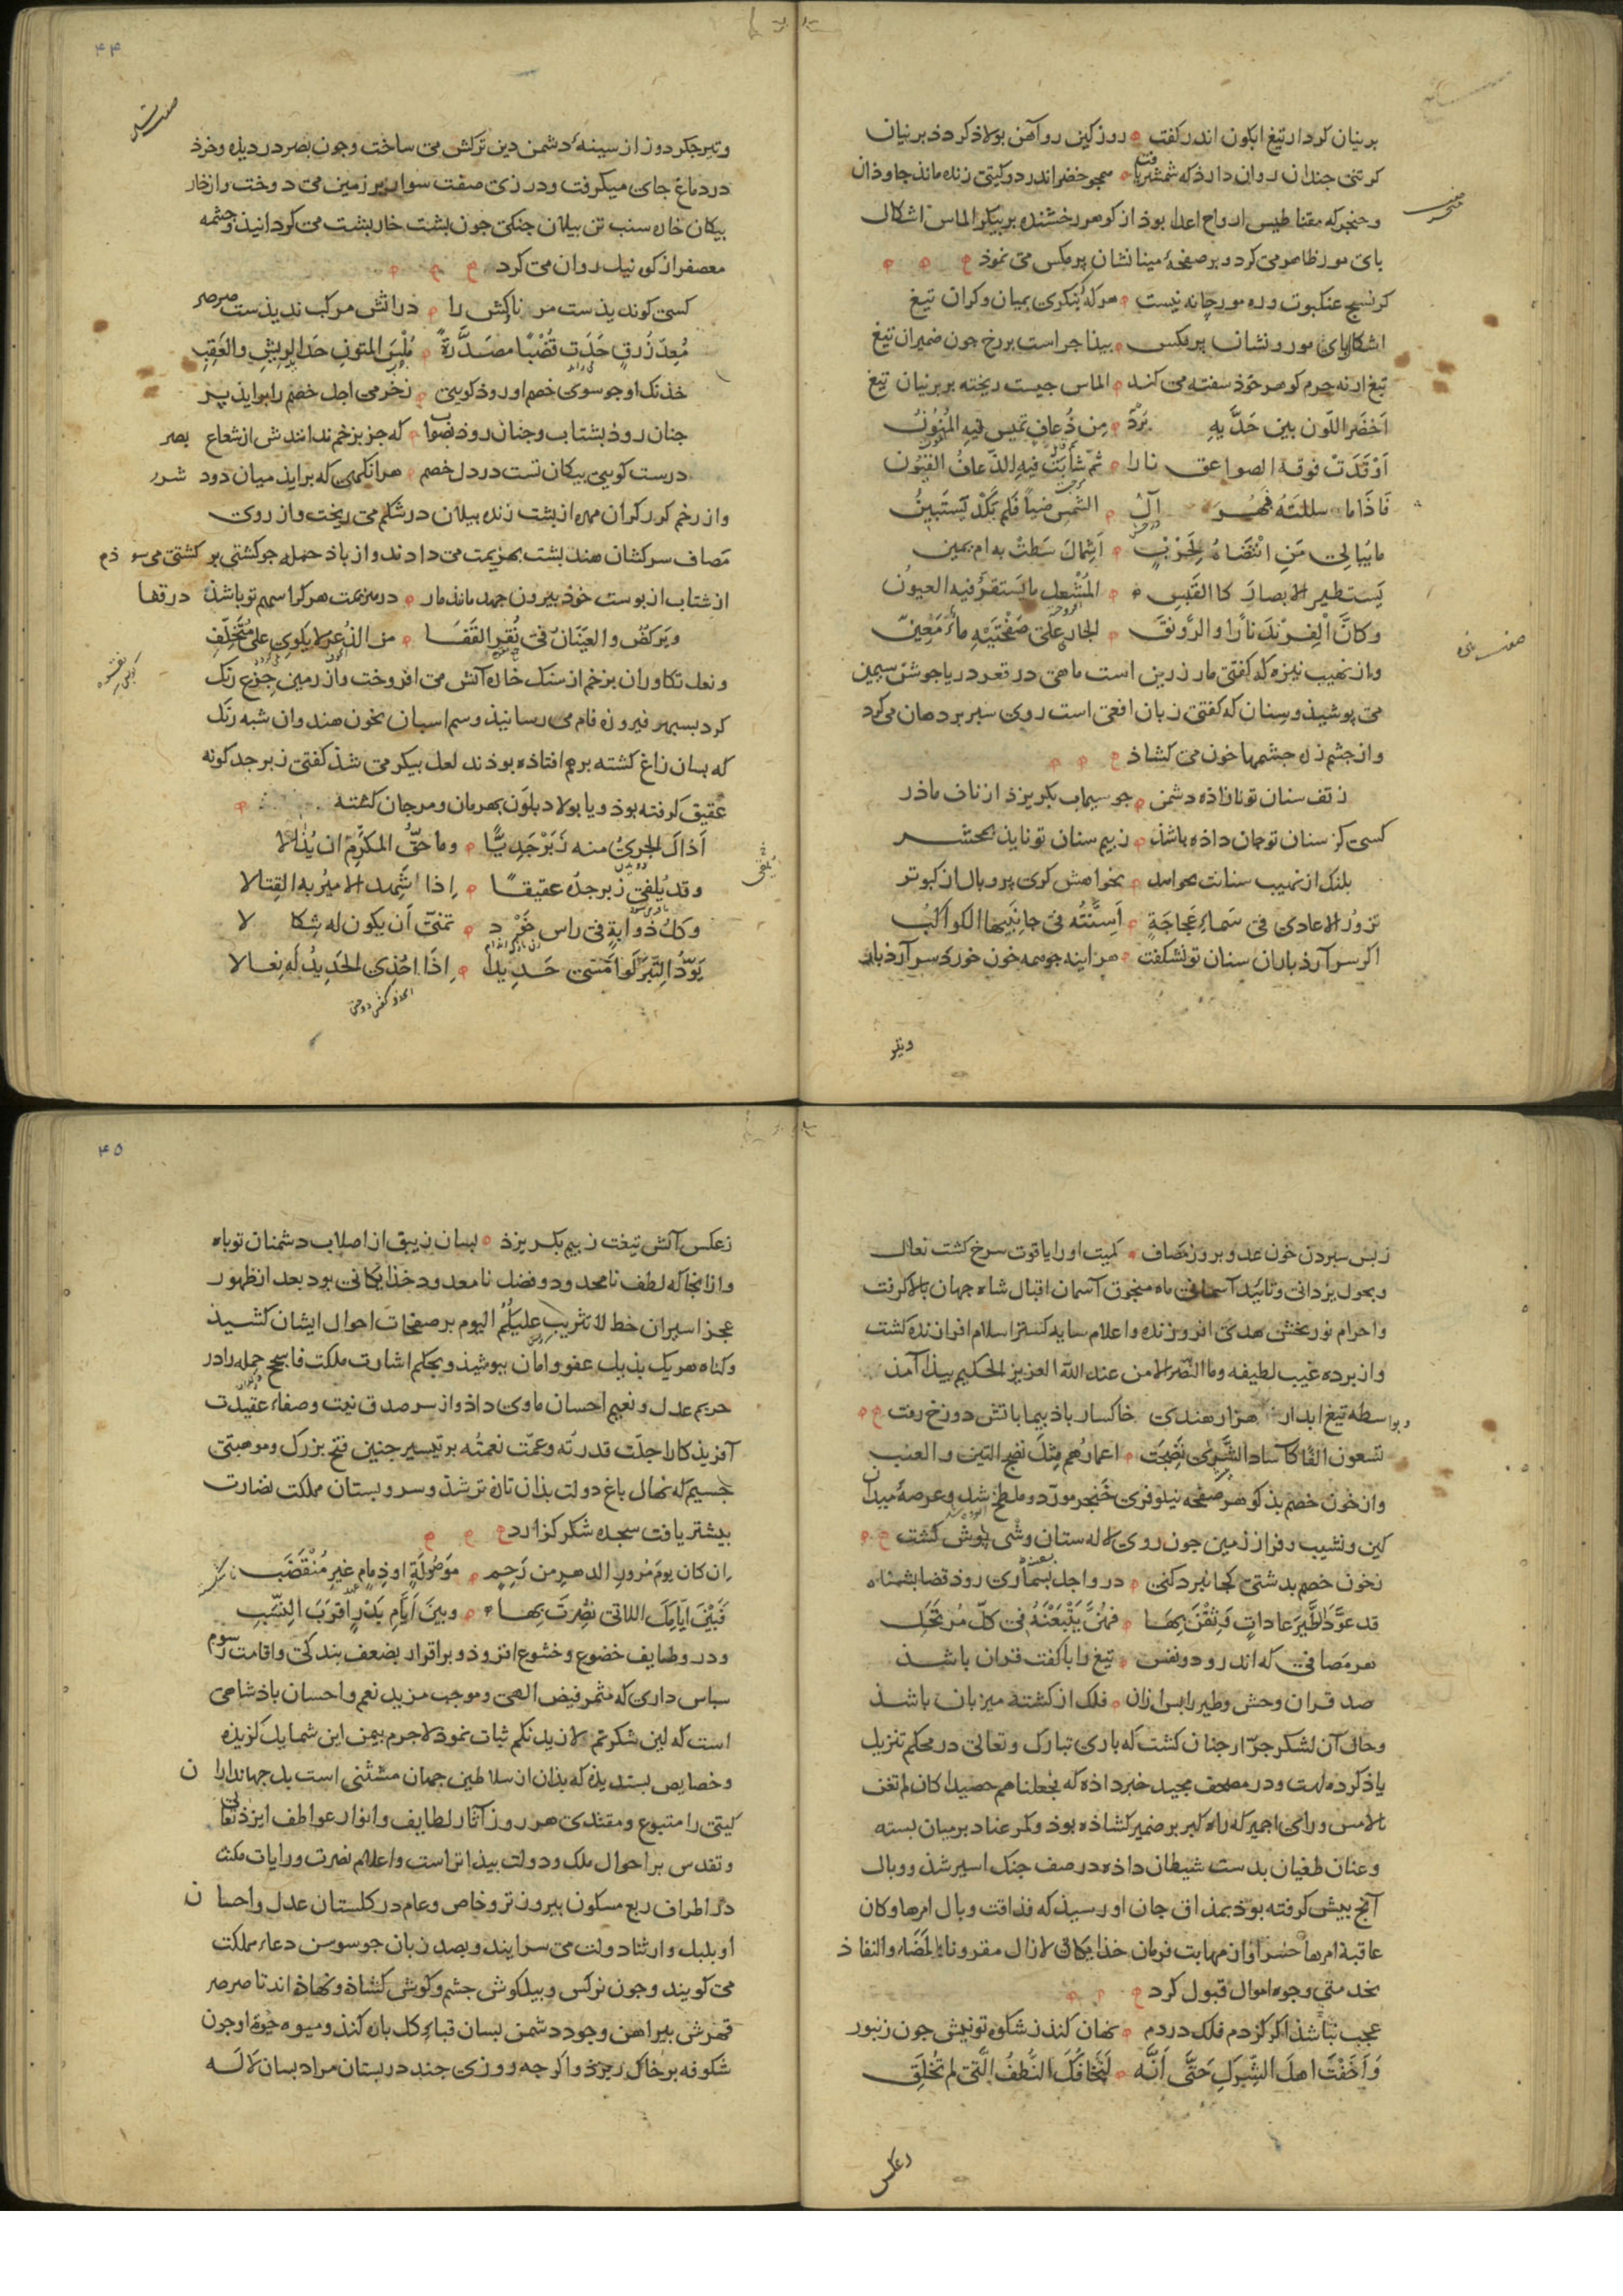 برنیان کردار تیغ ابکون اندر کفت روز کین روآهن بولاذ کردذ برنیان
کر تنی جندان روان دارذ که شمشیر یافت همجو خضر اندر دو کیتی زنده ماند جاوذان
و خنجر که مقناطیس ارواح اعدا بوذ از کوهر رخشنده بر بیکر الماس اشکال
بای مور ظاهر می کرد و بر صفحهٔ مینا نشان پر مکس می نموذ
کر نسیج عنکبوت و ره مورچانه نیست هر که بنکری بمیان و کران تیغ
اشکال بای مور و نشان پر مکس بیذا جراست بر رخ جون ضمیران تیغ
تیغ ارنه جرم کوهر خوذ سفته می کند الماس جیست ریخته بر برنیان تیغ
اَخضَر اللّون بین حَدَّیهِ بَرْدٌ مِن ذُعافٍ تمیس فیهِ المَنُونُ
اَوْقَدَتْ فوقه الصواعق نارا ثمّ شابَتْ فیهِ الذّعافُ القیُون
فَاذَاما سللتَهُ بَهَرَ الشَّمس ضیاً فلم تَکَدْ تَستَبینُ
ما یُبالی مَنِ انْتَضَاهُ لِحَرْبٍ اَشِمالٌ سَطَتْ به ام یمین
یَستطیر الابصارَ کالقَبَسِ المُشْعلِ ما تَستقرُّ فیه العیونُ
و کانَّ الفِرِنْدَ نارًا و الرَّونقَ الجارِ عَلَی صَفْحَتَیْهِ ماءٌ مَعِینٌ
و از نهیب نیزه که کفتی مار زرین است ماهی در قعر دریا جوشن سیمین
می بوشیذ و سنان که کفتی زبان افعی است روی سبر بر دهان می کرد
و از جشم زره جشمها خون می کشاذ
ز تف سنان تو نازاذه دشمن جو سیماب بکریزد از ناف ماذر
کسی کز سنان تو جان داذه باشذ ز بیم سنان تو نایذ بمحشر
بلنک از نهیب سنانت بخواهد نخواهش کری پر و بال از کبوتر
تزورُ الاعادی فی سَماءِ عَجاجَةٍ اَسِنَّتُه فی جانِبَیها الکواکبُ
اکر سر آرذ باران سنان تو نشکفت هر اینه جو همه خون خورد سر آرذ بار
و تیر
۴۴
صفت تیر
و تیر جکر دوز از سینهٔ دشمن دین ترکش می ساخت و جون بصر در دیذه و خرذ
در دماغ جای میکرفت و درزی صفت سوار بر زمین می دوخت و از خار
بیکان خاره سنب تن بیلان جنکی جون بشت خاربشت می کردانیذ و جشمه
معصفر از کوه نیل روان می کرد
کسی کوند یذست مر نارکش را در اتش مرکب ندیذست صرصر
مُعِدّ زُرقٍ حُذَت قُضْبًا مصَدَّرةً مُلْسَ المتونِ حَدا الرِیشِ والعَقِب
خذنک او جو سوی خصم او روذ کویی ز خرمی اجل خصم را بوایذ پر
جنان روذ بشتاب و جنان روذ بصواب که جز بزخم نداندش از شعاع بصر
درست کویی بیکان تست در دل خصم هرانکهی که برایذ میان دود شرر
و از زخم کرز کران مهره از بشت زنده بیلان در شکم می ریخت و از روی
مَصاف سرکشان هند بشت بهزیمت می دادند و از باذ حمله جو کشتی بر کشتی می سوذم
از شتاب از بوست خوذ بیرون جهد ماننذ مار در هزیمت هر کرا سهم تو باشذ در قفا
و یَرکضُ و العِیَنانُ فی نُقَرِ القَفَا من الذُعر لا یَلوِی علی مُتَخَلِّفِ
و نعل تکاوران بزخم از سنک خاره آتش می افروخت و از زمین جزع رنک
کرد بسبهر فیروزه فام می رسانیذ و سم اسبان بخون هندوان شبه رنک
که بسان زاغ کشته بر هم افتاذه بوذند لعل بیکر می شذ کفتی زبرجد کونه
عقیق کرفته بوذ و یا بولاد بلون بهرمان و مرجان کشته
اَذالَ الجریُ منه زَبَرْجَدِیًّا و ما حقُّ المکَرَّمِ ان یُذالا
و قد یُلفی زبرجدُه عقیقًا اِذا شَهِد الامیرُ به القِتالا
و کلُّ ذوابةٍ فی راس خَوْدٍ تمنّی اَن یکون له شِکالا
یَوَدُّ التِّبرُ لَو اَمْسَی حَدِیدًا اِذَا احُذِی الحَدِیدُ لَهُ نِعَالا
ز بس سبردن خون عدو بروز مصاف کمیت او را یاقوت سرخ کشت نعال
و بحول یزدانی و تایید آسمانی ماه منجوق آسمان اقبال شاه جهان بالا کرفت
و احرام نوربخش هدی افروزنده و اعلام سایه کستر اسلام افرازنده کشت
و از برده غیب لطیفه و ما النّصر الا من عند الله العزیز الحکیم بیذا آمذ
و بواسطه تیغ ابدار هزار هندی خاکسار باذ بیما باتش دوزخ رفت
تسعون الفًا کآساد الشَّرَی نَضِجَت اعمارُهُم مثلَ نضج التین و العنب
و از خون خصم بذ کوهر صفحه نیلوفری خنجر مورّد و ملطّخ شد و عرصه میدان
کین و نشیب و فراز زمین جون روی لاله ستان وشی بوش کشت
نخون خصم بدشتی کجا نبرد کنی درو اجل بسماری روذ قضا بشناه
قد عَوَّدَ الطَّیرَ عاداتٍ وَثِقْنَ بِهَا فهُنَّ یَتْبَعْنَهُ فی کلّ مُرتَحَل
هر مَصافی که اندرو دو نفس تیغ را با کفت قران باشد
صد قران وحش و طیر را بس ازان فلک از کشته میزبان باشذ
و حال آن لشکر جرّار جنان کشت که باری تبارک و تعالی در محکم تنزیل
یاذ کرده است و در مصحف مجید خبر داذه که فجعلناهم حصیدا کان لم تغن
بالامس و رای اجمیر که راه کبر بر ضمیر کشاذه بوذ و کمر عناد بر میان بسته
و عنان طغیان بدست شیطان داذه در صف جنک اسیر شذ و وبال
آنج بیش کرفته بوذ بمذاق جان او رسیذ که فذاقت وبال امرها و کان
عاقبة امرها خسرا و از مهابت فرمان خذایکانی لازال مقرونا بالمضاء و النفاذ
بخدمتی وجوه اموال قبول کرد
عجب نباشذ اکر کزدم فلک در دم نهان کنذ ز شکوه تو نیش جون زنبور
وَ اَخَفْتَ اهلَ الشِّرکِ حَتَّی اَنَّه لَتَخافُکَ النُّطَفُ الَّتی لم تُخلَقِ
ز عکس
۴۵
ز عکس آتش تیغت ز بیم بکریزذ بسان زیبق از اصلاب دشمنان تو باه
و از انجا که لطف نامحدود و فضل نامعدود خذایکانی بود بعد از ظهور
عجز اسیران خط لا تثریب علیکُمُ الیوم بر صفحات احوال ایشان کشیذ
و کناه هر یک بذیل عفو و امان ببوشیذ و بحکم اشارت ملکت فاسجح جمله را در
حریم عدل و نعیم احسان ماوی داذ و از سر صدق نیت و صفاء عقیدت
آفریذکار را جلّت قدرته و عمّت نعمتُه بر تیسیر جنین فتح بزرک و موهبتی
جسیم که نهال باغ دولت بذان تازه تر شذ و سرو بستان مملکت نضارت
بیشتر یافت سجده شکر کزارد
اِن کان یومَ مُرورِ الدهرِ من رَحِمٍ مَوصُولَةٍ او ذِمامٍ غیرِ مُنْقَضِب
فَبَیْنَ اَیّامِکَ اللاتی نُصِرتَ بِها وبینَ اَیّامِ بَدْرٍ اَقرَبَ النِسَبِ
و در وظایف خضوع و خشوع افزوذ و بر اقرار بضعف بندکی و اقامت رسوم
سباس داری که مثمر فیض الهی و موجب مزید نعم و احسان باذشاهی
است که لین شکرتم لازیدنکم ثبات نموذ لاجرم بیمن این شمایل کزیذه
و خصایص بسندیذه که بذان از سلاطین جهان مستثنی است بل جهانداران
کیتی را متبوع و مقتدی هر روز آثار لطایف و انوار عواطف ایزد تعالی
و تقدس بر احوال ملک و دولت بیذاتراست و اعلام نصرت و رایات مکنت
در اطراف ربع مسکون بیروزتر و خاص و عام در کلستان عدل و احسان
او بلبل وار ثناء دولت می سرایند و بصد زبان جو سوسن دعاء مملکت
می کویند و جون نرکس و بیلکوش جشم و کوش کشاذه و نهاذه اند تا صرصر
قهرش بیراهن وجود دشمن بسان قباء کل باره کنذ و میوه حیوة او جون
شکوفه بر خاک ریزذ و اکر جه روزی جند در بستان مراد بسان لاله